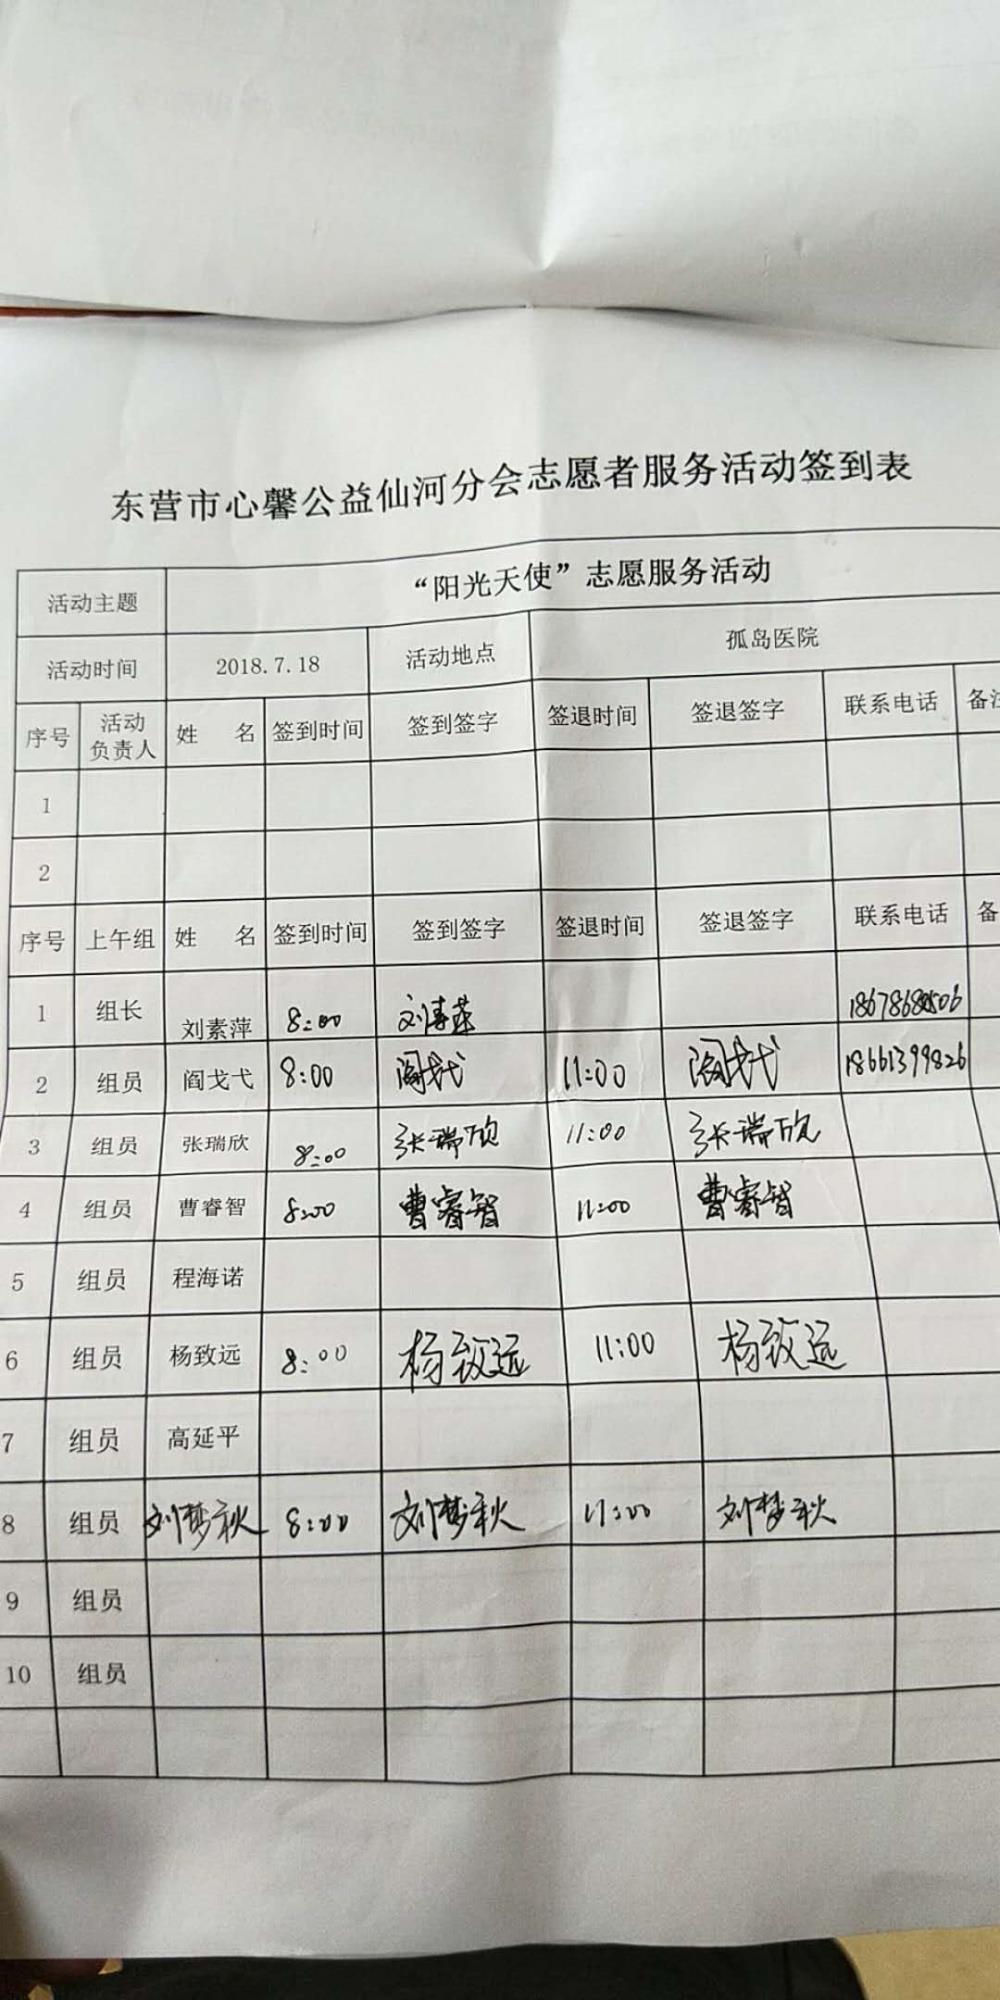 东营市心馨公益仙河分会志愿者服务活动签到表
活动主题 “阳光天使”志愿服务活动
活动时间 2018.7.18 活动地点 孤岛医院
序号 活动负责人 姓 名 签到时间 签到签字 签退时间 签退签字 联系电话 备注
1
2
序号 上午组 姓 名 签到时间 签到签字 签退时间 签退签字 联系电话 备
1 组长 刘素萍 8:00 刘素萍
2 组员 阎戈弋 8:00 阎戈弋 11:00 阎戈弋 18661399826
3 组员 张瑞欣 8:00 张瑞欣 11:00 张瑞欣
4 组员 曹睿智 8:00 曹睿智 11:00 曹睿智
5 组员 程海诺
6 组员 杨致远 8:00 杨致远 11:00 杨致远
7 组员 高延平
8 组员 刘梦秋 8:00 刘梦秋 11:00 刘梦秋
9 组员
10 组员